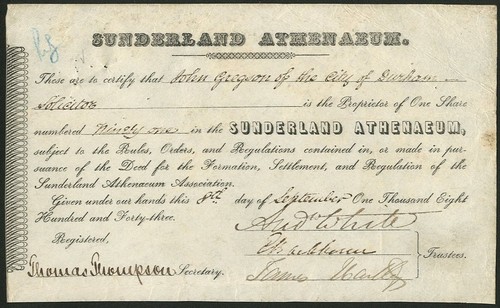 SUNDERLAND ATHENAEUM.
These are to certify that John Gregson of the City of Durham
Solicitor is the Proprietor of One Share
numbered Ninety one in the SUNDERLAND ATHENAEUM,
subject to the Rules, Orders, and Regulations contained in, or made in pur-
suance of the Deed for the Formation, Settlement, and Regulation of the
Sunderland Athenaeum Association.
Given under our hands this day of September One Thousand Eight
Hundred and Forty-three.
Registered,
Andw White
Trustees.
Thomas Thompson Secretary.
James Hartley